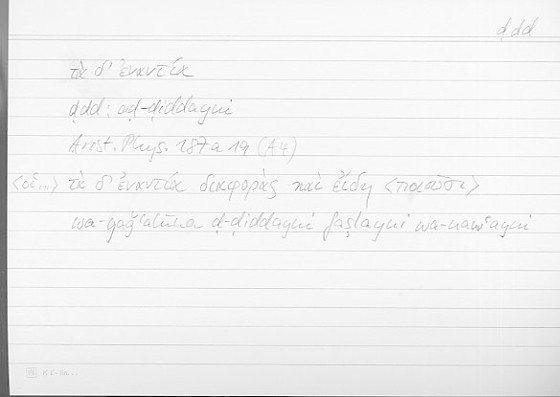 ḍdd
τὰ δ' ἐναντία
ḍdd: aḍ-ḍiddayni
Arist. Phys. 187a19 (A4)
<οἱ...> τὰ δ' ἐναντία διαφορὰς καὶ εἴδη <ποιοῦσι>
wa-yaǧʿalūna ḍ-ḍiddayni faṣlayni wa-nawʿayni